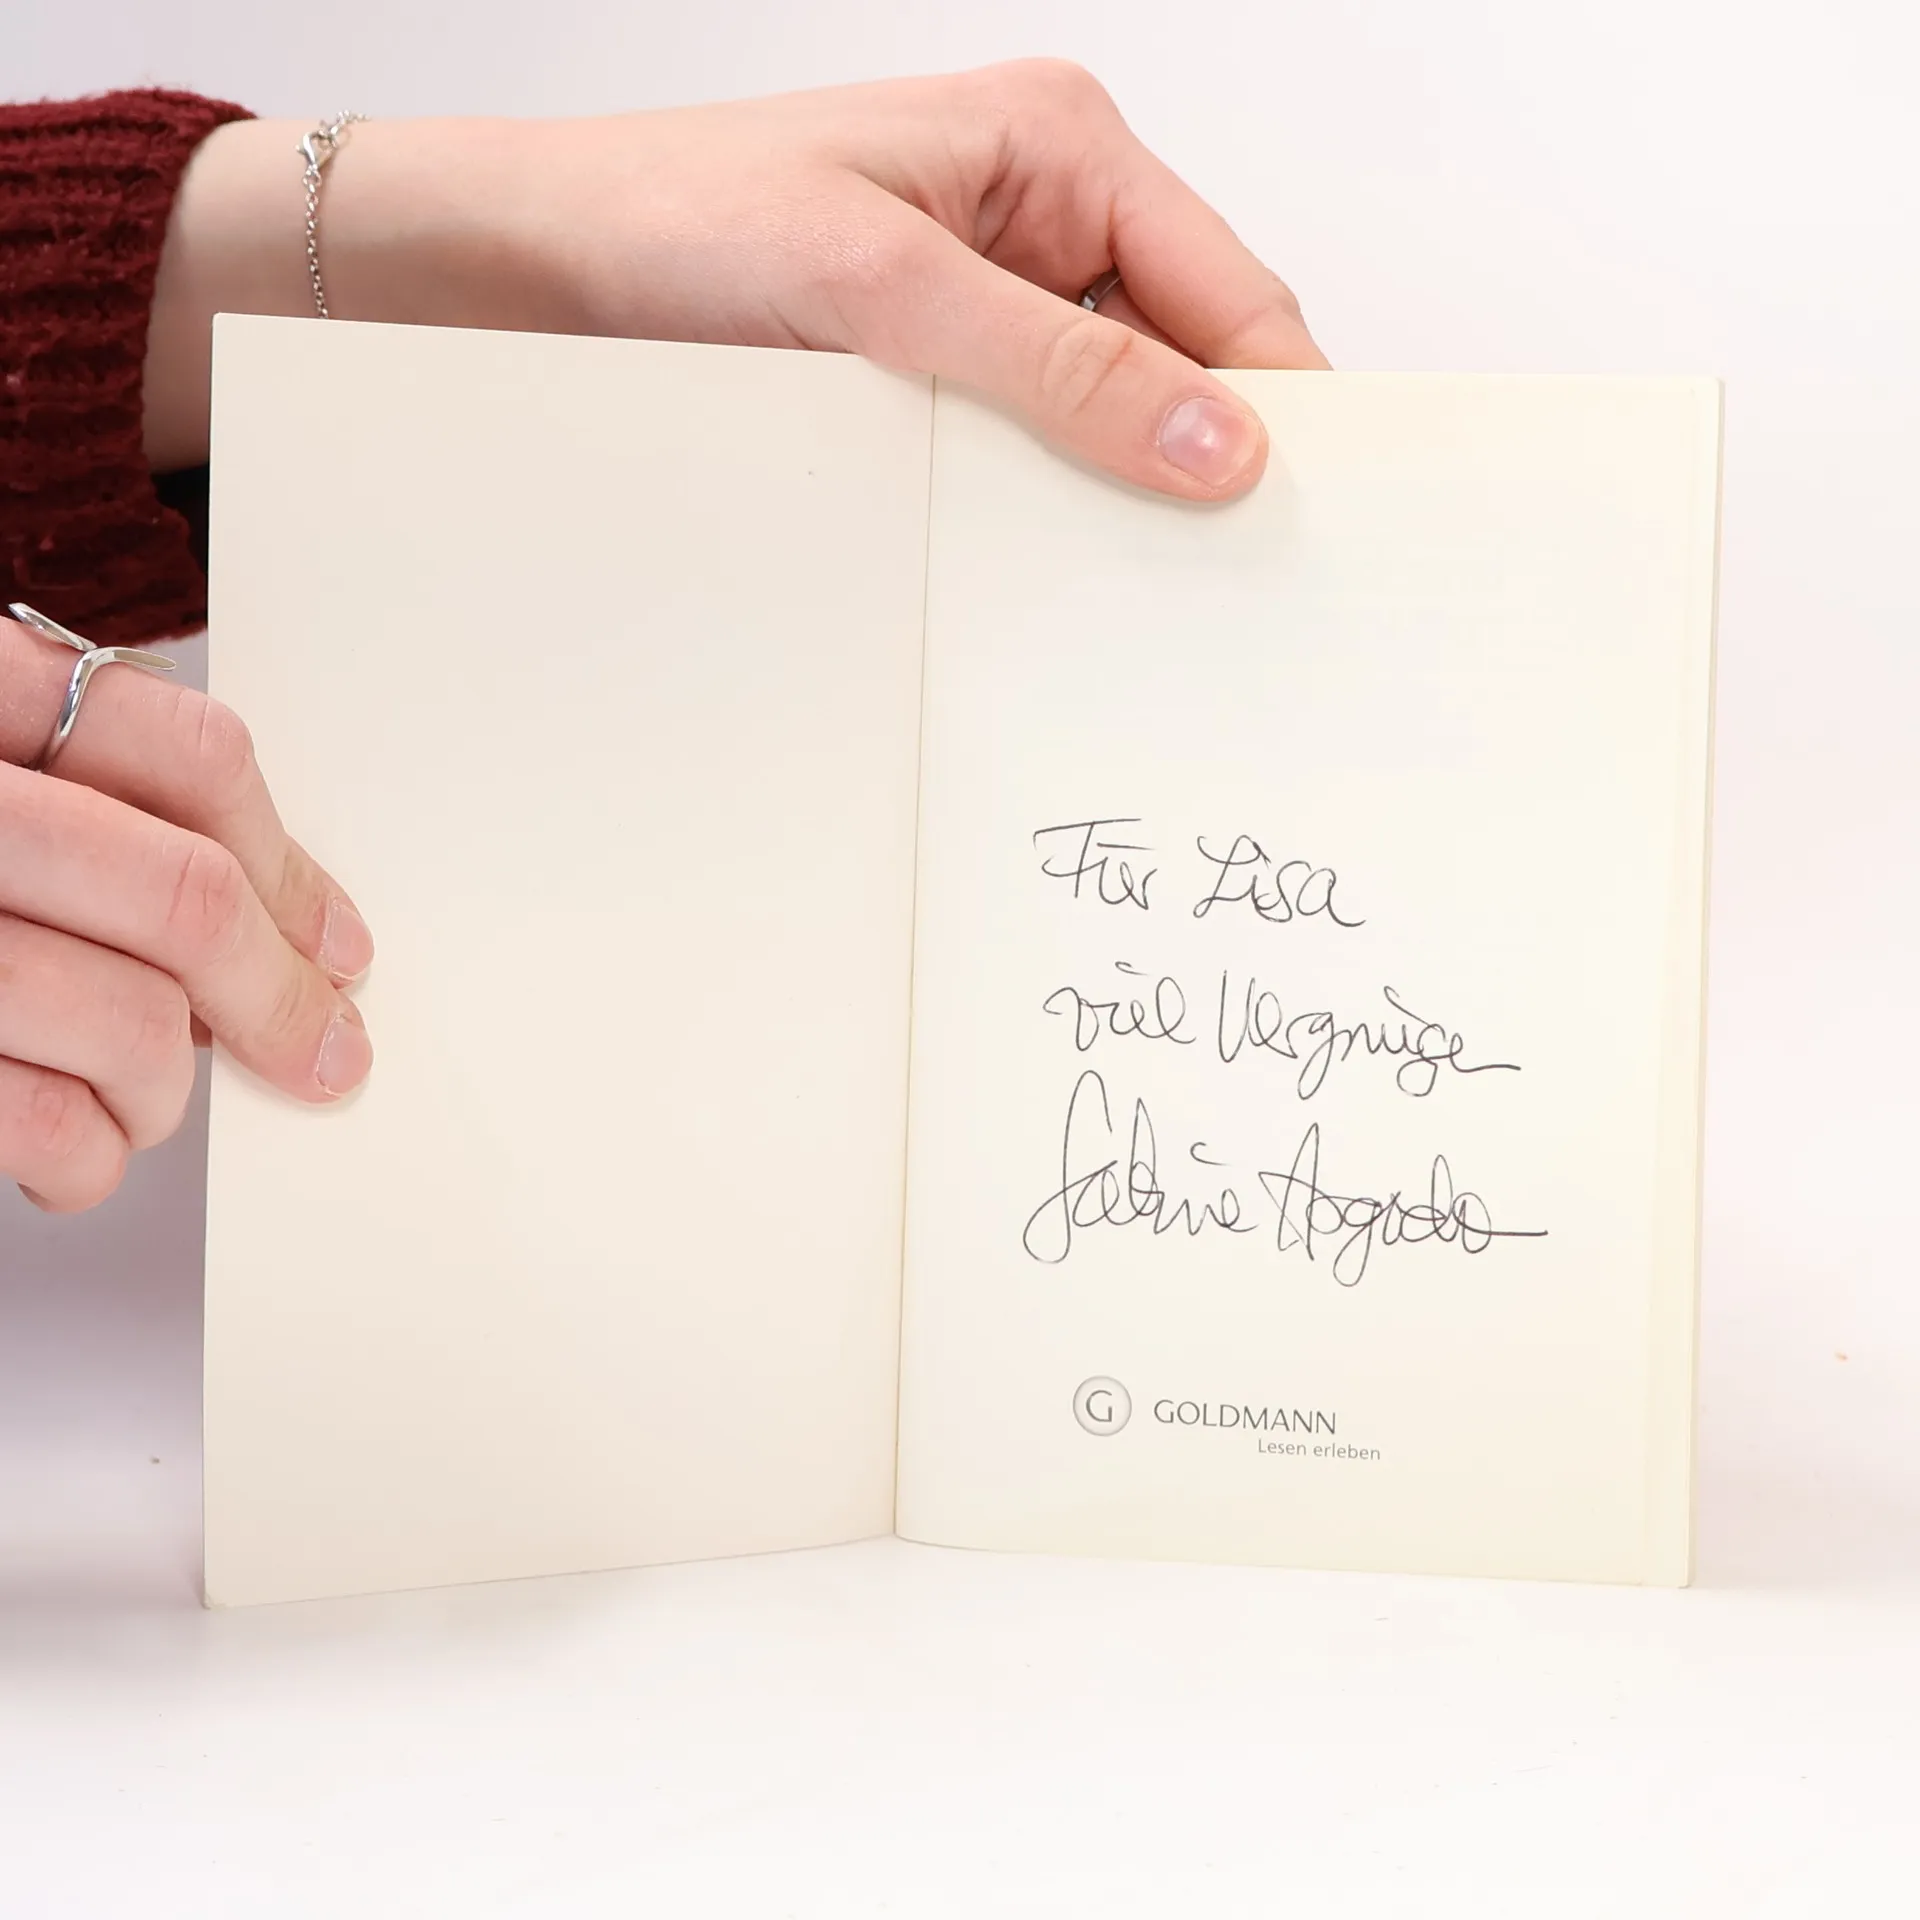 Für Lisa
viel Vergnüge
Sabine Asgodo
G GOLDMANN
Lesen erleben